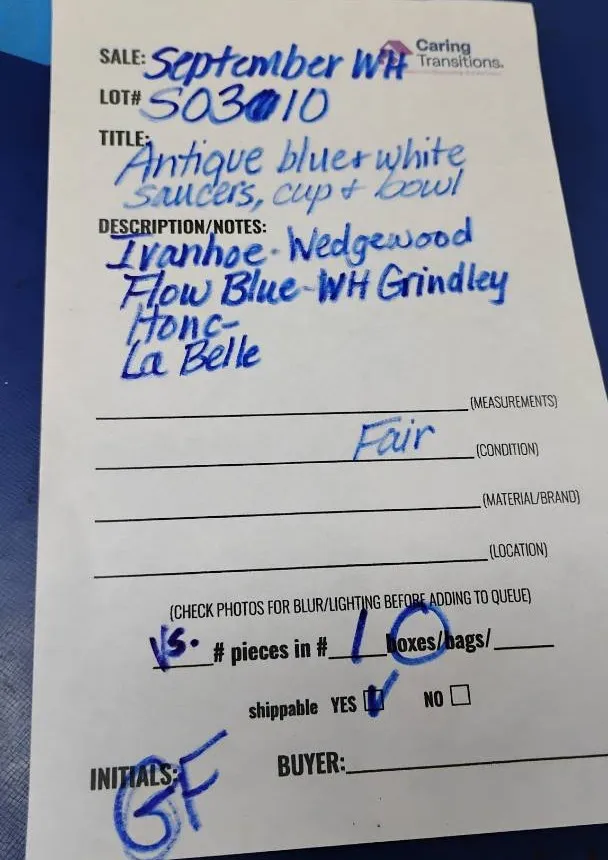 Caring
SALE: September WH Transitions.
LOT# S03010
TITLE:
Antique blue + white
saucers, cup + bowl
DESCRIPTION/NOTES:
Ivanhoe - Wedgewood
Flow Blue - WH Grindley
Honc-
La Belle
(MEASUREMENTS)
Fair (CONDITION)
(MATERIAL/BRAND)
(LOCATION)
(CHECK PHOTOS FOR BLUR/LIGHTING BEFORE ADDING TO QUEUE)
VS. # pieces in # 1 boxes/bags/
shippable YES NO
INITIALS: GF BUYER: